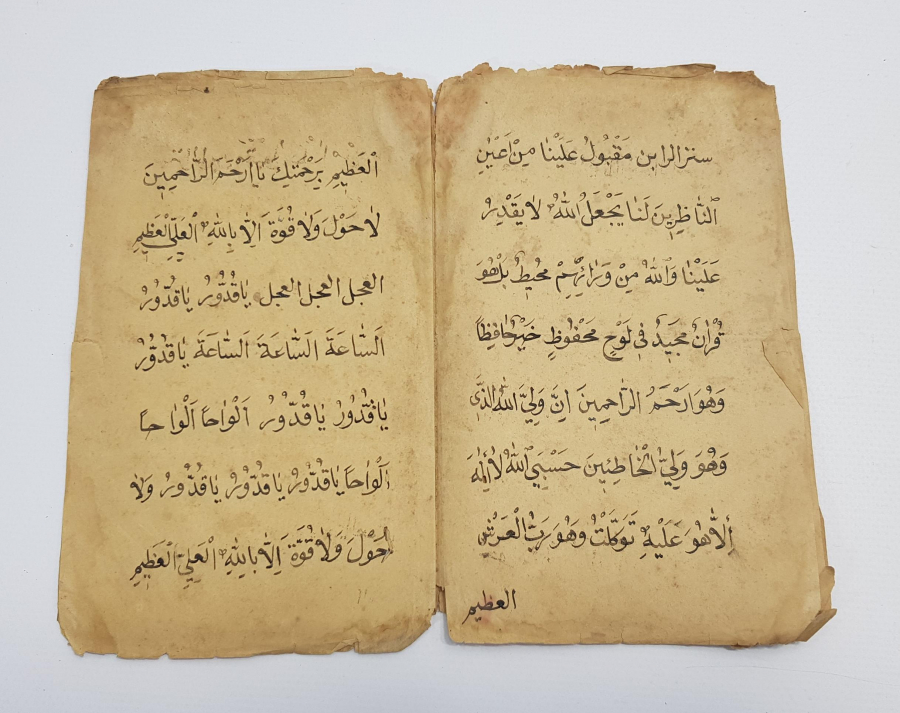 سترالرابن مَقْبُول عَلَيْنا مِنْ اَعْيُنِ
النّاظِرِينَ لَنا يَجْعَلُ اللّٰهُ لا يَقْدِرُ
عَلَيْنا وَاللّٰهُ مِنْ وَرَائِهِمْ مُحِيطٌ بَلْ هُوَ
قُرْاٰنٌ مَجِيدٌ فِي لَوْحٍ مَحْفُوظٍ خَيْرٌ حافِظًا
وَهُوَ اَرْحَمُ الرّاحِمِينَ اِنَّ وَلِيَّ اللّٰهُ الَّذِي
وَهُوَ وَلِيُّ الْخاطِئِينَ حَسْبِيَ اللّٰهُ لا اِلٰهَ
اِلّا هُوَ عَلَيْهِ تَوَكَّلْتُ وَهُوَ رَبُّ الْعَرْشِ
العظيم
الْعَظِيْمِ بِرَحْمَتِكَ يا اَرْحَمَ الرّاحِمِينَ
لا حَوْلَ وَلا قُوَّةَ اَلّا بِاللّٰهِ الْعَلِيِّ الْعَظِيمِ
العجل العجل العجل ياقُدُّورُ ياقُدُّورُ
اَلسّاعَةَ اَلسّاعَةَ اَلسّاعَةَ ياقُدُّورُ
ياقُدُّورُ ياقُدُّورُ اَلْواحاً اَلْواحاً
اَلْواحاً ياقُدُّورُ ياقُدُّورُ ياقُدُّورُ وَلا
حَوْلَ وَلا قُوَّةَ اِلّا بِاللّٰهِ الْعَلِيِّ الْعَظِيمِ